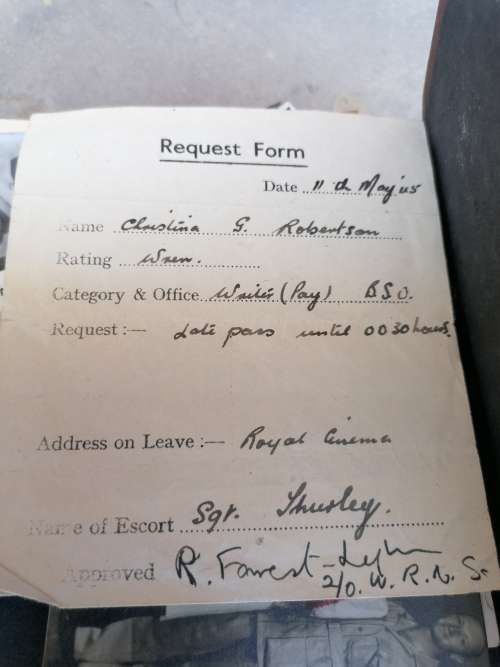 Request Form
Date 11th May '45
Name Christina G. Robertson
Rating Wren.
Category & Office Writer (Pay) BSO.
Request :— Late pass until 0030 hours.
Address on Leave :— Royal Cinema
Name of Escort Sgt.
Approved R. Forrest-
2/O. W.R.N.S.